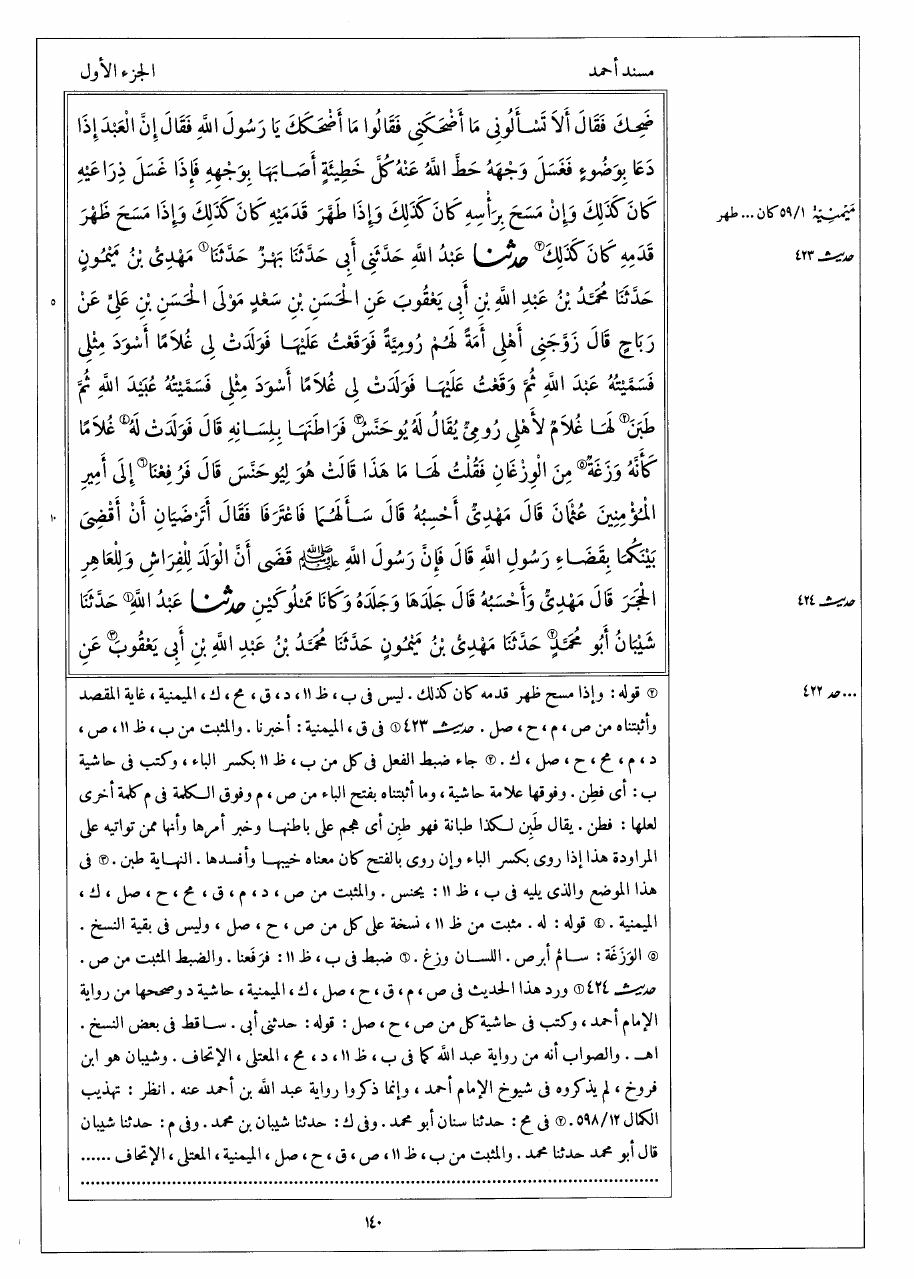 مسند أحمد
الجزء الأول
ضَحِكَ فَقَالَ أَلاَ تَسْأَلُونِى مَا أَضْحَكَنِى فَقَالُوا مَا أَضْحَكَكَ يَا رَسُولَ اللَّهِ فَقَالَ إِنَّ الْعَبْدَ إِذَا
دَعَا بِوَضُوءٍ فَغَسَلَ وَجْهَهُ حَطَّ اللَّهُ عَنْهُ كُلَّ خَطِيئَةٍ أَصَابَهَا بِوَجْهِهِ فَإِذَا غَسَلَ ذِرَاعَيْهِ
كَانَ كَذَلِكَ وَإِنْ مَسَحَ بِرَأْسِهِ كَانَ كَذَلِكَ وَإِذَا طَهَّرَ قَدَمَيْهِ كَانَ كَذَلِكَ وَإِذَا مَسَحَ ظَهْرَ
مَيْمَنِيَّة ٥٩/١ كان ... طهر
قَدَمِهِ كَانَ كَذَلِكَ② حدثنا عَبْدُ اللَّهِ حَدَّثَنِى أَبِى حَدَّثَنَا بَهْزٌ حَدَّثَنَا① مَهْدِىُّ بْنُ مَيْمُونٍ
حديث ٤٢٣
حَدَّثَنَا مُحَمَّدُ بْنُ عَبْدِ اللَّهِ بْنِ أَبِى يَعْقُوبَ عَنِ الْحَسَنِ بْنِ سَعْدٍ مَوْلَى الْحَسَنِ بْنِ عَلِىٍّ عَنْ
٥
رَبَاحٍ قَالَ زَوَّجَنِى أَهْلِى أَمَةً لَهُمْ رُومِيَّةً فَوَقَعْتُ عَلَيْهَا فَوَلَدَتْ لِى غُلاَمًا أَسْوَدَ مِثْلِى
فَسَمَّيْتُهُ عَبْدَ اللَّهِ ثُمَّ وَقَعْتُ عَلَيْهَا فَوَلَدَتْ لِى غُلاَمًا أَسْوَدَ مِثْلِى فَسَمَّيْتُهُ عُبَيْدَ اللَّهِ ثُمَّ
طَبَنَ② لَهَا غُلاَمٌ لأَهْلِى رُومِىٌّ يُقَالُ لَهُ يُوحَنَّسُ③ فَرَاطَنَهَا بِلِسَانِهِ قَالَ فَوَلَدَتْ لَهُ④ غُلاَمًا
كَأَنَّهُ وَزَغَةٌ⑤ مِنَ الْوِزْغَانِ فَقُلْتُ لَهَا مَا هَذَا قَالَتْ هُوَ لِيُوحَنَّسَ قَالَ فَرُفِعْنَا⑥ إِلَى أَمِيرِ
الْمُؤْمِنِينَ عُثْمَانَ قَالَ مَهْدِىٌّ أَحْسِبُهُ قَالَ سَأَلَهُمَا فَاعْتَرَفَا فَقَالَ أَتَرْضَيَانِ أَنْ أَقْضِىَ
١٠
بَيْنَكُمَا بِقَضَاءِ رَسُولِ اللَّهِ قَالَ فَإِنَّ رَسُولَ اللَّهِ ﷺ قَضَى أَنَّ الْوَلَدَ لِلْفِرَاشِ وَلِلْعَاهِرِ
الْحَجَرَ قَالَ مَهْدِىٌّ وَأَحْسَبُهُ قَالَ جَلَدَهَا وَجَلَدَهُ وَكَانَا مَمْلُوكَيْنِ حدثنا عَبْدُ اللَّهِ① حَدَّثَنَا
حديث ٤٢٤
شَيْبَانُ أَبُو مُحَمَّدٍ② حَدَّثَنَا مَهْدِىُّ بْنُ مَيْمُونٍ حَدَّثَنَا مُحَمَّدُ بْنُ عَبْدِ اللَّهِ بْنِ أَبِى يَعْقُوبَ③ عَنِ
② قوله : وإذا مسح ظهر قدمه كان كذلك . ليس فى ب ، ظ ١١ ، د ، ق ، مح ، ك ، الميمنية ، غاية المقصد
... حد ٤٢٢
وأثبتناه من ص ، م ، ح ، صل . حديث ٤٢٣ ① فى ق ، الميمنية : أخبرنا . والمثبت من ب ، ظ ١١ ، ص ،
د ، م ، مح ، ح ، صل ، ك . ② جاء ضبط الفعل فى كل من ب ، ظ ١١ بكسر الباء ، وكتب فى حاشية
ب : أى فطِن . وفوقها علامة حاشية ، وما أثبتناه بفتح الباء من ص ، م وفوق الكلمة فى م كلمة أخرى
لعلها : فطن . يقال طَبِن لكذا طبانة فهو طبِن أى هجم على باطنها وخبر أمرها وأنها ممن تواتيه على
المراودة هذا إذا روى بكسر الباء وإن روى بالفتح كان معناه خيبها وأفسدها . النهاية طبن . ③ فى
هذا الموضع والذى يليه فى ب ، ظ ١١ : يحنس . والمثبت من ص ، د ، م ، ق ، مح ، ح ، صل ، ك ،
الميمنية . ④ قوله : له . مثبت من ظ ١١ ، نسخة على كل من ص ، ح ، صل ، وليس فى بقية النسخ .
⑤ الوَزَغَة : سائم أبرص . اللسان وزغ . ⑥ ضبط فى ب ، ظ ١١ : فرَفَعنا . والضبط المثبت من ص .
حديث ٤٢٤ ① ورد هذا الحديث فى ص ، م ، ق ، ح ، صل ، ك ، الميمنية ، حاشية د وصححها من رواية
الإمام أحمد ، وكتب فى حاشية كل من ص ، ح ، صل : قوله : حدثنى أبى . ساقط فى بعض النسخ .
اهـ . والصواب أنه من رواية عبد الله كما فى ب ، ظ ١١ ، د ، مح ، المعتلى ، الإتحاف . وشيبان هو ابن
فروخ ، لم يذكروه فى شيوخ الإمام أحمد ، وإنما ذكروا رواية عبد الله بن أحمد عنه . انظر : تهذيب
الكمال ٥٩٨/١٢ . ② فى مح : حدثنا سنان أبو محمد . وفى ك : حدثنا شيبان بن محمد . وفى م : حدثنا شيبان
قال أبو محمد حدثنا محمد . والمثبت من ب ، ظ ١١ ، ص ، ق ، ح ، صل ، الميمنية ، المعتلى ، الإتحاف ......
١٤٠